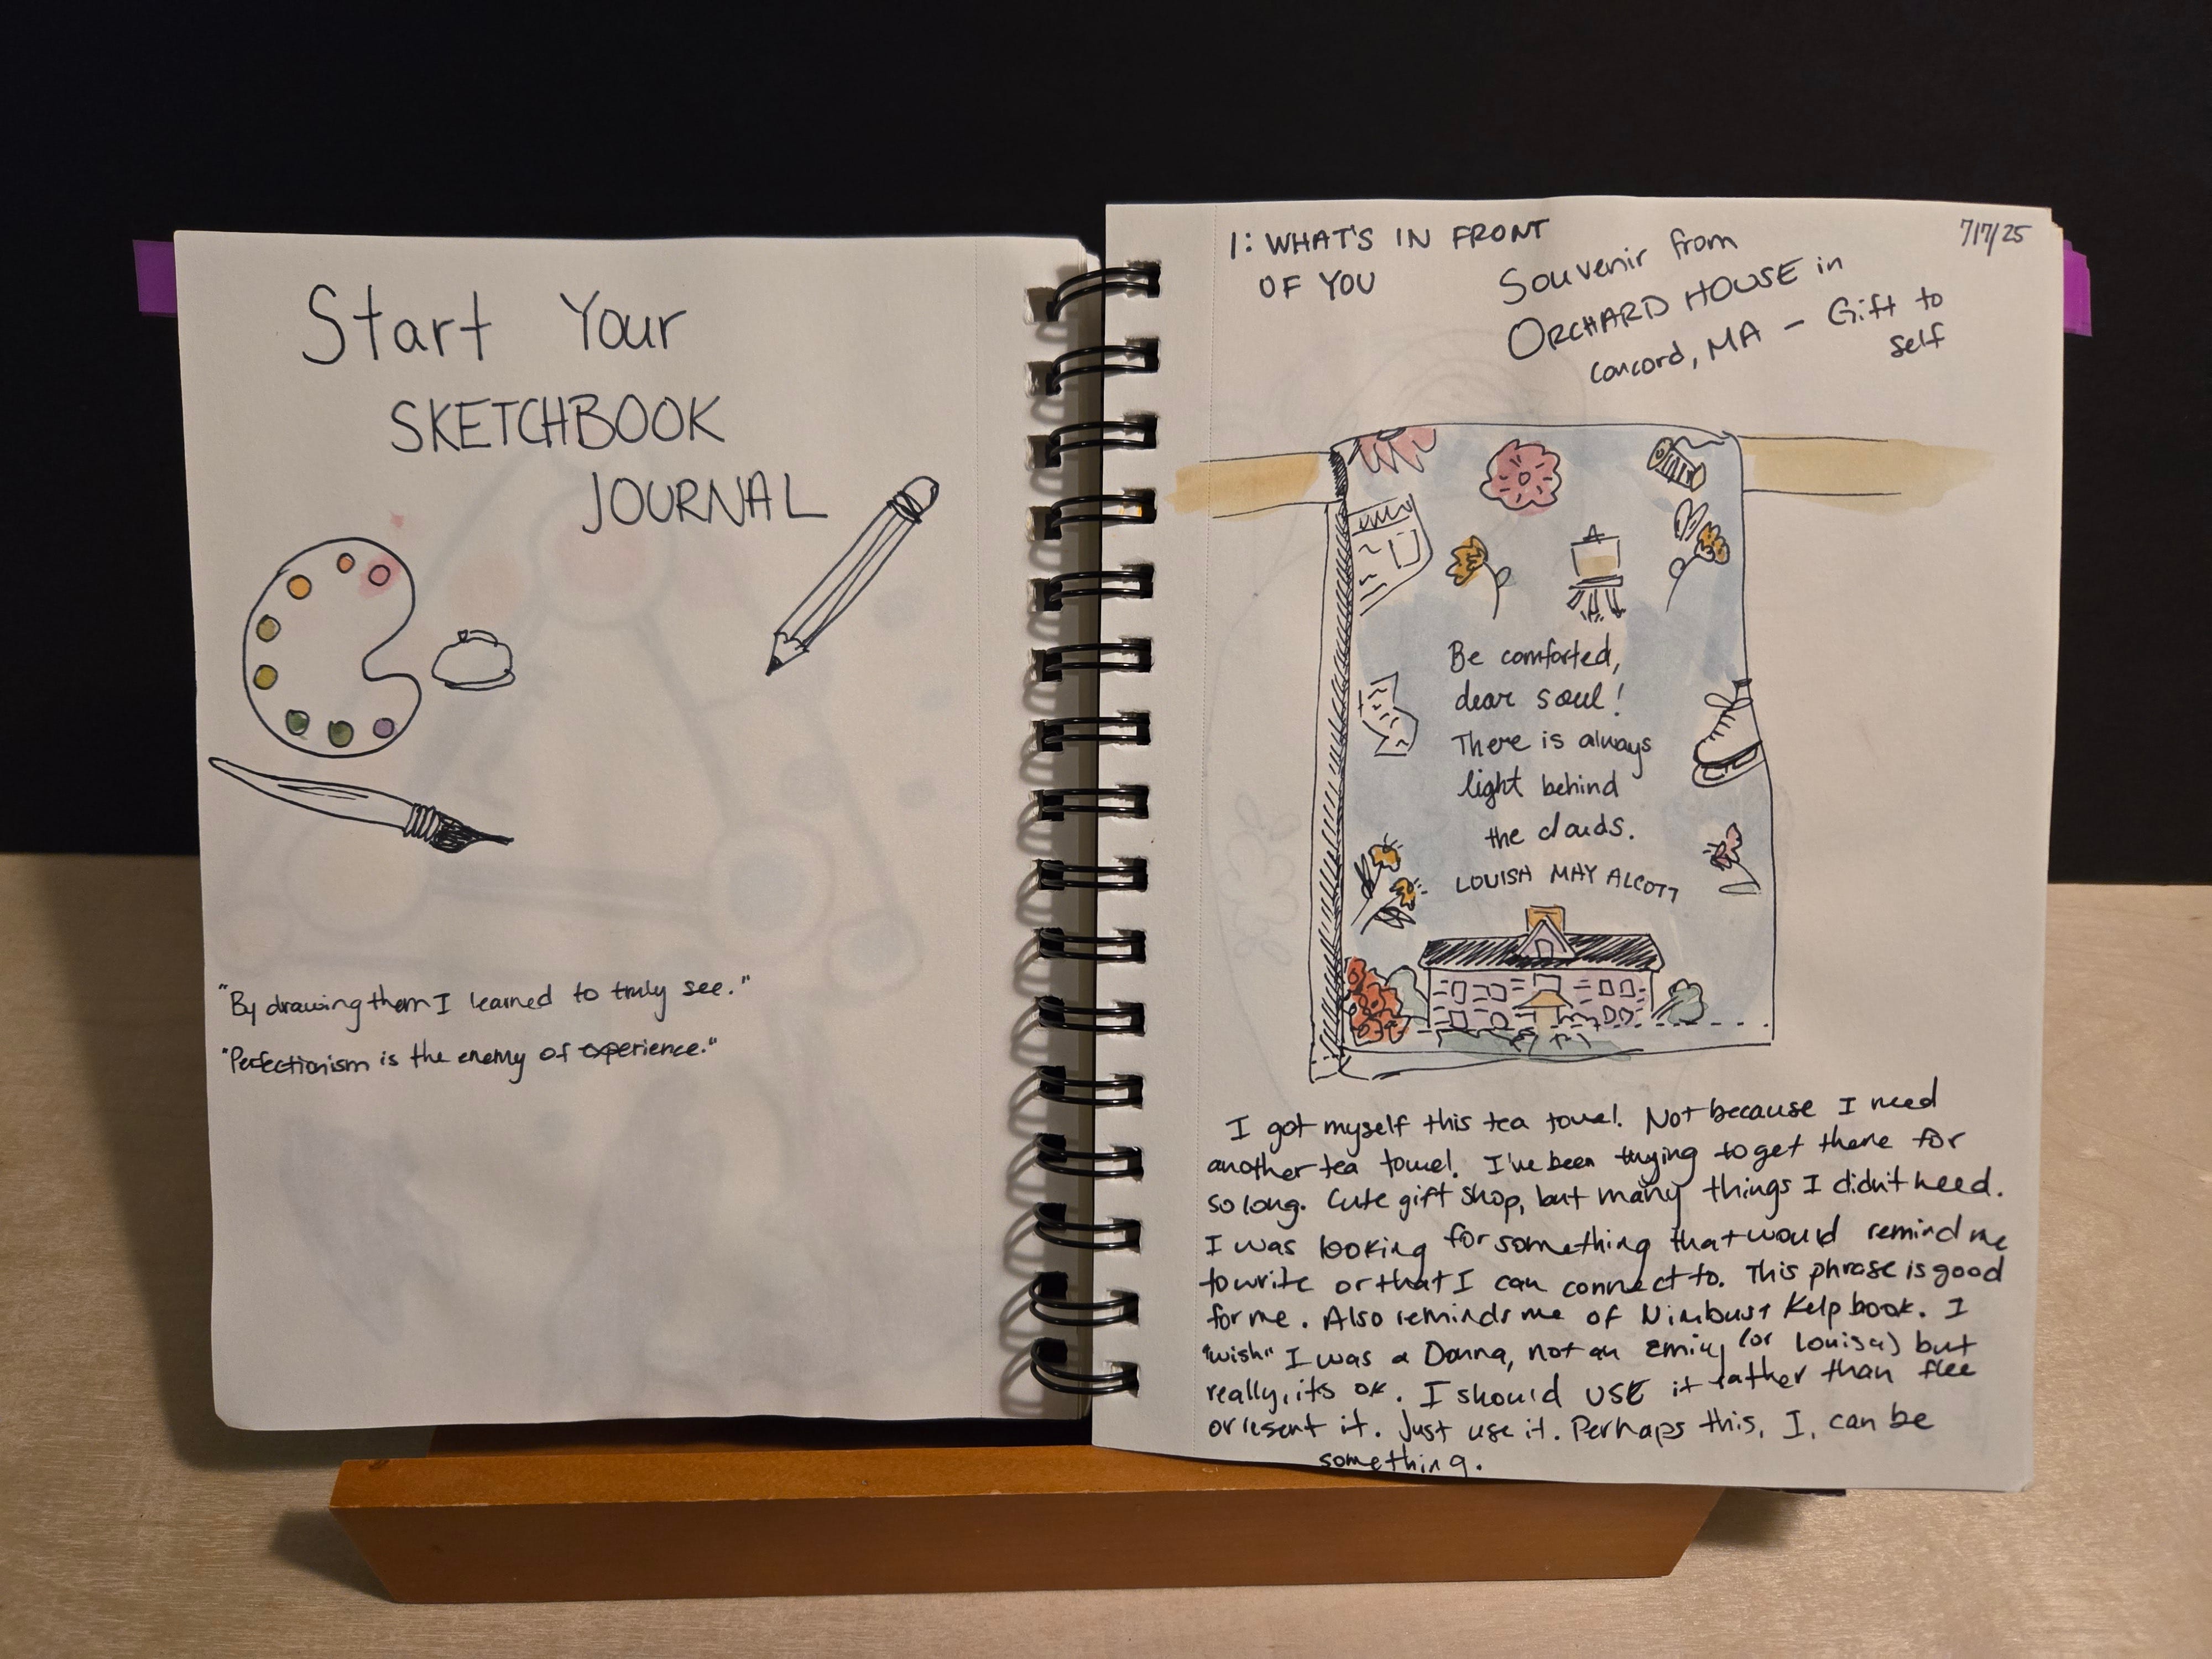 Start Your
SKETCHBOOK
JOURNAL
"By drawing them I learned to truly see."
"Perfectionism is the enemy of experience."
1: WHAT'S IN FRONT
OF YOU
7/17/25
Souvenir from
ORCHARD HOUSE in
Concord, MA – Gift to
self
Be comforted,
dear soul!
There is always
light behind
the clouds.
LOUISA MAY ALCOTT
I got myself this tea towel. Not because I need
another tea towel. I've been trying to get there for
so long. Cute gift shop, but many things I didn't need.
I was looking for something that would remind me
to write or that I can connect to. This phrase is good
for me. Also reminds me of Kelp book. I
"wish" I was a Donna, not an Emily (or Louisa) but
really, its ok. I should USE it rather than flee
or resent it. Just use it. Perhaps this, I, can be
something.